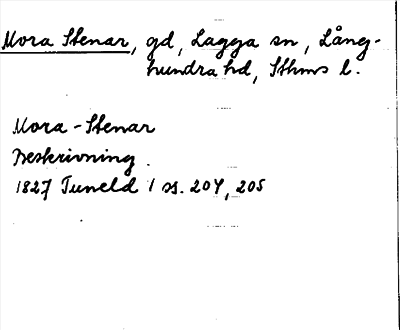 Mora Stenar, gd, Lagga sn, Lång-
hundra hd, Sthms l.
Mora-Stenar
Beskrivning.
1827 Tuneld 1 ss. 204, 205